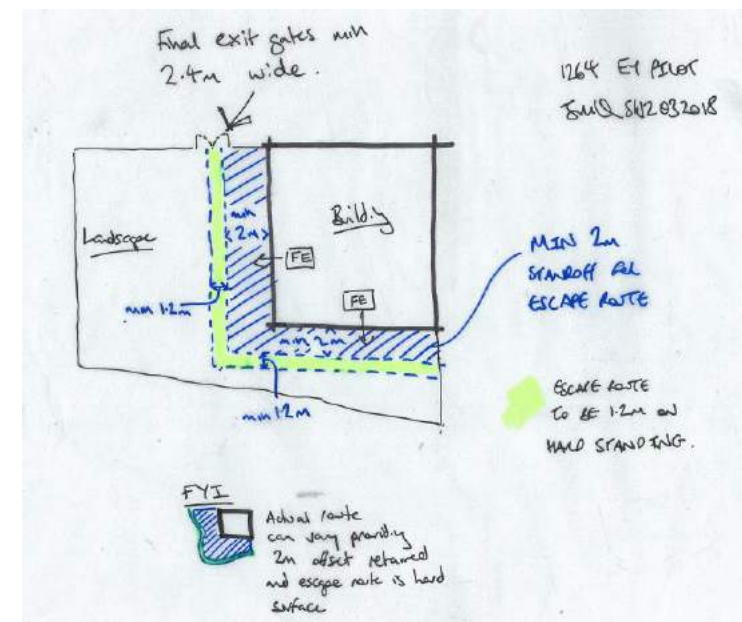 Final exit gates min
2.4m wide.
1264 EY PILOT
Landscape
Building
min
2m
FE
FE
min 1.2m
min 2m
min 1.2m
MIN 2m
STANDOFF FOR
ESCAPE ROUTE
ESCAPE ROUTE
TO BE 1.2M ON
HARD STANDING.
FYI
Actual route
can vary providing
2m offset retained
and escape route is hard
surface